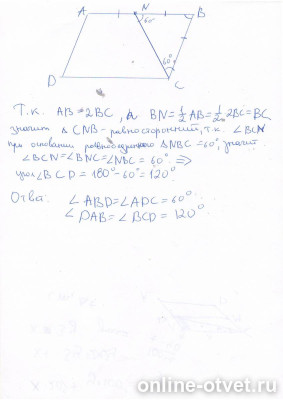 A N B
60°
60°
D C
Т.к. AB=2BC, а BN=½AB=½2BC=BC,
значит △CNB-равносторонний, т.к. ∠BCN
при основании равнобедренного △NBC=60°, значит
∠BCN=∠BNC=∠NBC=60° ⇒
угол ∠BCD=180°-60°=120°
Ответ: ∠ABD=∠ADC=60°
∠DAB=∠BCD=120°
online-otvet.ru